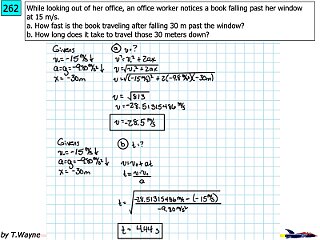 262
While looking out of her office, an office worker notices a book falling past her window
at 15 m/s.
a. How fast is the book traveling after falling 30 m past the window?
b. How long does it take to travel those 30 meters down?
Givens
v₀=-15 m/s ↓
a=g=-9.80 m/s² ↓
x=-30m
a v=?
v²=v₀²+2ax
v=√v₀²+2ax
v=√(-15 m/s)²+2(-9.8 m/s²)(-30m)
v=√813
v=-28.5131548 m/s
v=-28.5 m/s
Givens
v₀=-15 m/s ↓
a=g=-9.80 m/s² ↓
x=-30m
b t=?
v=v₀+at
t=v-v₀
a
t=
-28.5131548 m/s-(-15 m/s)
-9.80 m/s²
t=4.44 s
by T.Wayne